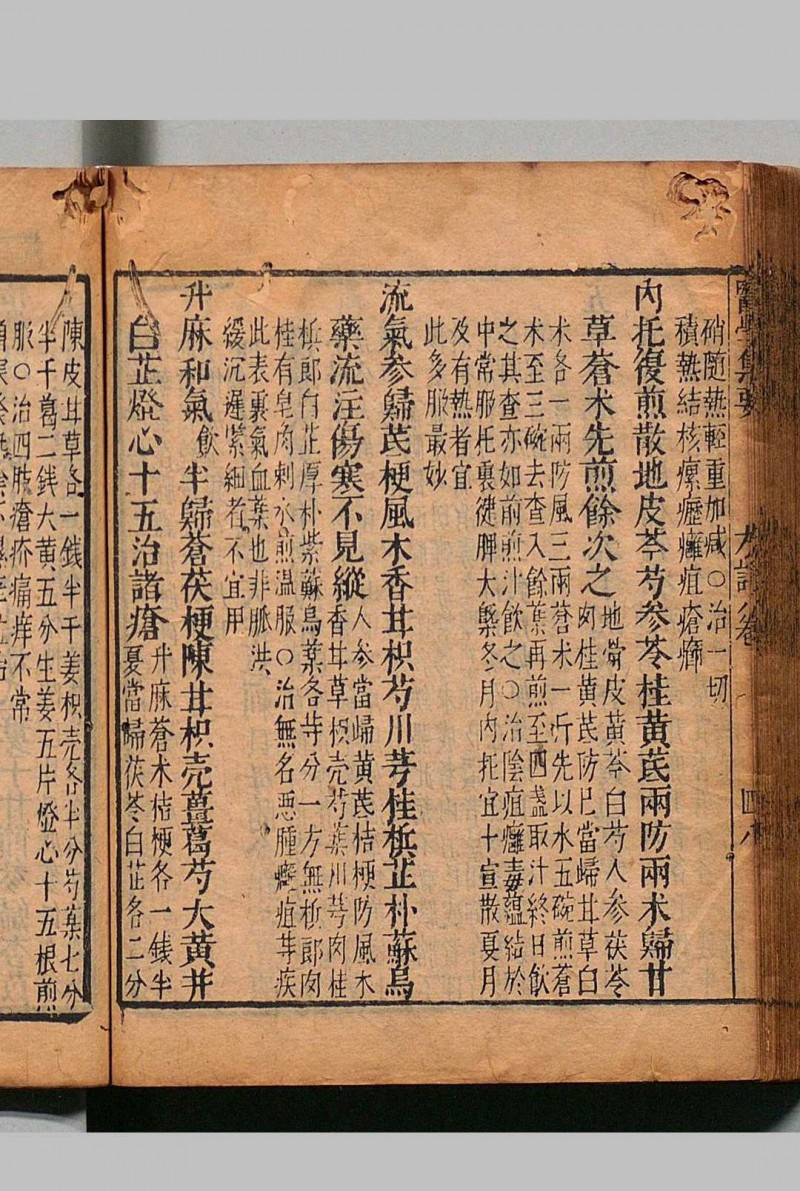 硝随熱輕重加减○治一切
積熱結核瘰癧癰疽瘡癤
内托復煎散地皮芩芍參苓桂黄茋兩防兩术歸甘
草蒼术先煎餘次之
地骨皮黄芩白芍人參茯苓
肉桂黄茋防巳當歸甘草白
术各一兩防風三兩蒼术一斤先以水五碗煎蒼
术至三碗去查入餘藥再煎至四盞取汁終日飲
之其查亦如前煎汁飲之○治陰疽癰毒蘊結於
中常服托裏健脾大槩冬月内托宜十宣散夏月
及有熱者宜
此多服最妙
流氣參歸茋梗風木香甘枳芍川芎桂梹芷朴蘇烏
藥流注傷寒不見縱
人參當歸黄茋桔梗防風木
香甘草枳壳芍藥川芎肉桂
梹郎白芷厚朴紫蘇烏藥各等分一方無梹郎肉
桂有皂肉刺水煎温服○治無名惡腫癰疽等疾
此表裏氣血藥也非脈洪
緩沉遲緊細者不宜用
升麻和氣飲半歸蒼茯梗陳甘枳壳薑葛芍大黄并
白芷燈心十五治諸瘡
升麻蒼术桔梗各一錢半
夏當歸茯苓白芷各二分
陳皮甘草各一錢半干姜枳壳各半分芍藥七分
半干葛二錢大黄五分生姜五片燈心十五根煎
服○治四肢瘡疥痛痒不常